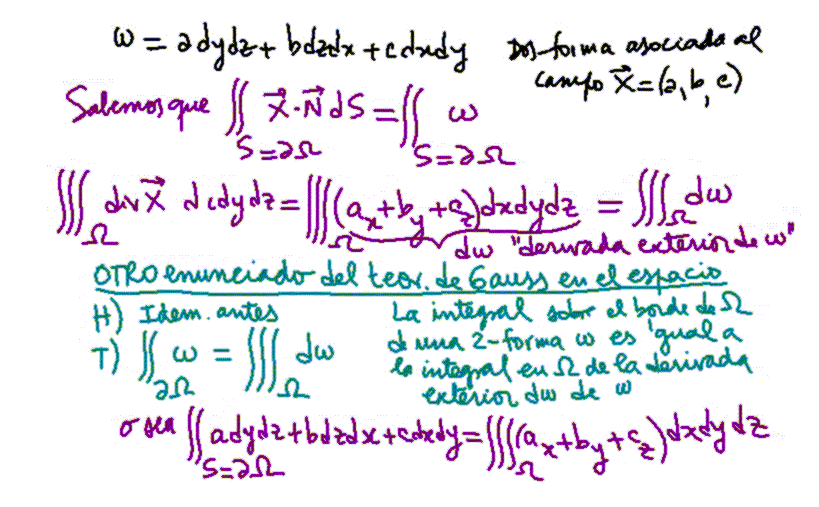 ω = a dydz + b dzdx + c dxdy Dos-forma asociada al
campo X⃗ = (a, b, c)
Sabemos que ∬_{S=∂Ω} X⃗·N⃗ dS = ∬_{S=∂Ω} ω
∭_Ω div X⃗ dxdydz = ∭_Ω (a_x + b_y + c_z) dxdydz = ∭_Ω dω
dω "derivada exterior de ω"
OTRO enunciado del teor. de Gauss en el espacio
H) Idem. antes
T) ∬_{∂Ω} ω = ∭_Ω dω
La integral sobre el borde de Ω
de una 2-forma ω es igual a
la integral en Ω de la derivada
exterior dω de ω
o sea ∬_{S=∂Ω} a dydz + b dzdx + c dxdy = ∭_Ω (a_x + b_y + c_z) dxdydz